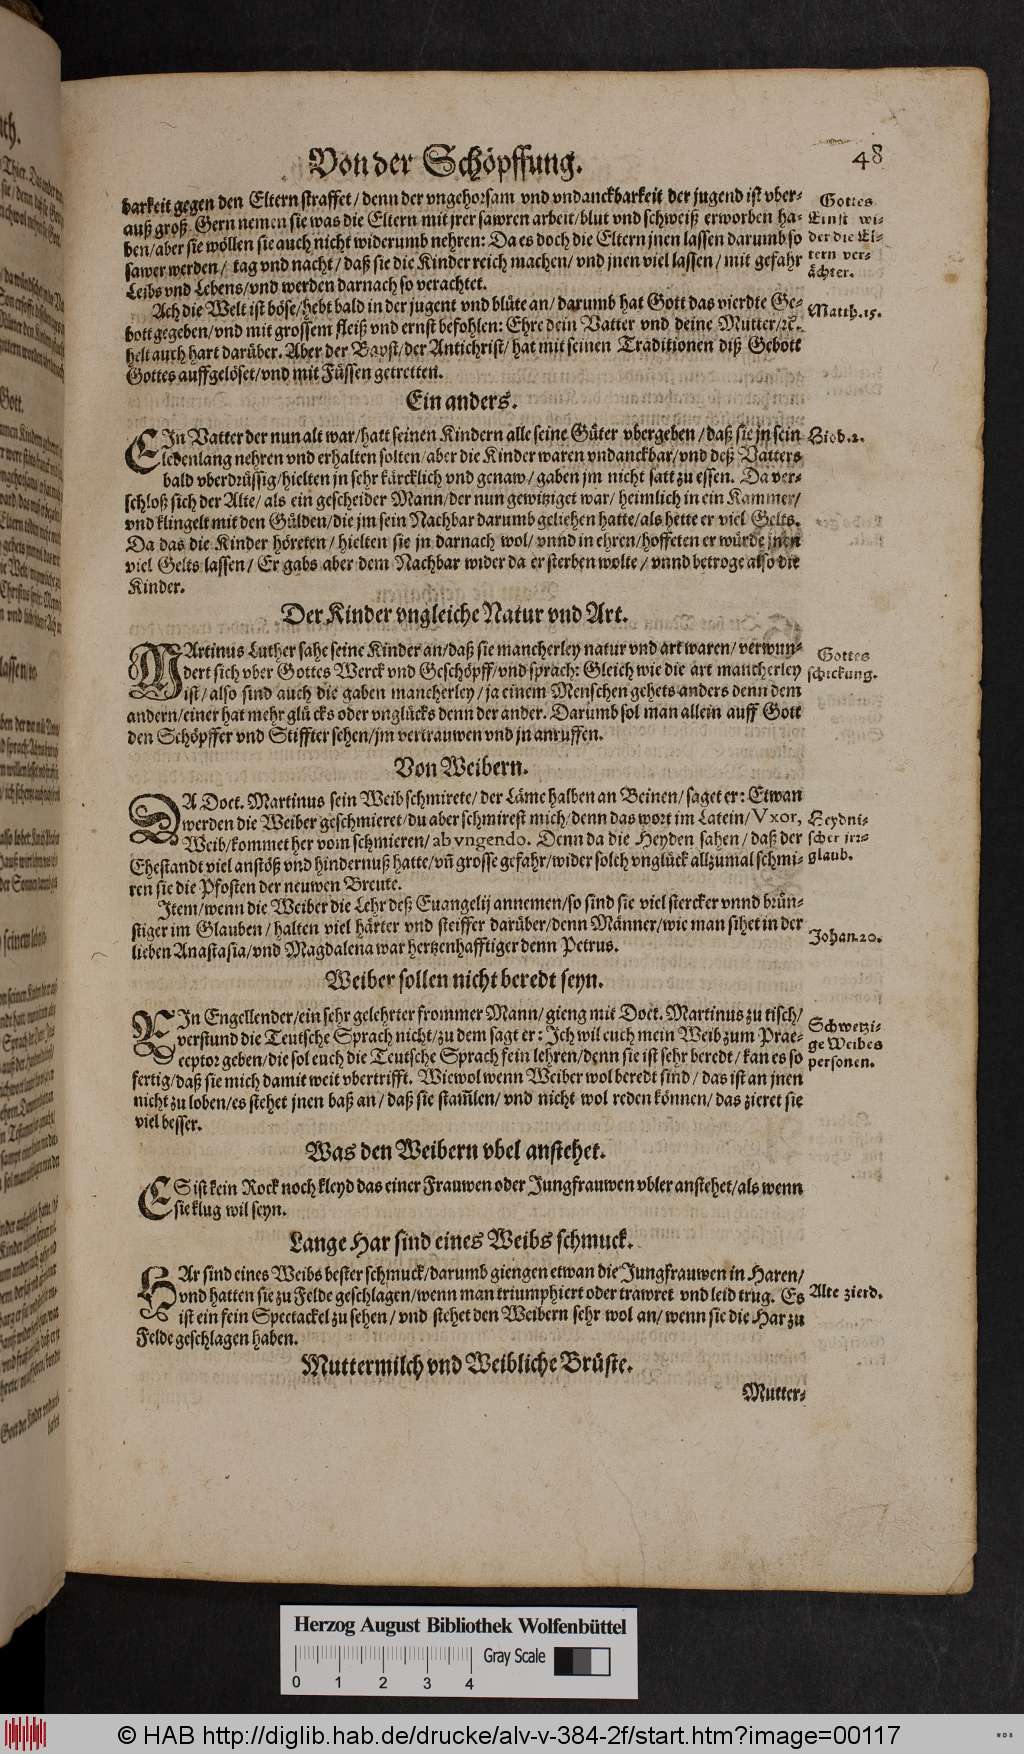 Von der Schöpffung. 48
darkeit gegen den Eltern straffet / denn der vngehorsam vnd vndanckbarkeit der jugend ist vber⸗
auß groß. Gern nemen sie was die Eltern mit jrer sawren arbeit/blut vnd schweiß erworben ha⸗
ben/aber sie wöllen sie auch nicht widerumb nehren: Da es doch die Eltern jnen lassen darumb so
sawer werden / tag vnd nacht / daß sie die Kinder reich machen/ vnd jnen viel lassen / mit gefahr
Leibs vnd Lebens/vnd werden darnach so verachtet.
Gottes
Ernst wi⸗
der die El⸗
tern ver⸗
ächter.
Ach die Welt ist böse/hebt bald in der jugent vnd blüte an/ darumb hat Gott das vierdte Ge⸗
bott gegeben/vnd mit grossem fleiß vnd ernst befohlen: Ehre dein Vatter vnd deine Mutter/ꝛc.
helt auch hart darüber. Aber der Bapst/der Antichrist/ hat mit seinen Traditionen diß Gebott
Gottes auffgelöset/vnd mit Füssen getretten.
Matth.15.
Ein anders.
EIn Vatter der nun alt war/hatt seinen Kindern alle seine Güter vbergeben / daß sie jn sein
lebenlang nehren vnd erhalten solten/ aber die Kinder waren vndanckbar/vnd deß Vatters
bald vberdrüssig/hielten jn sehr kärcklich vnd genaw / gaben jm nicht satt zu essen. Da ver⸗
schloß sich der Alte/ als ein gescheider Mann/der nun gewitziget war/ heimlich in ein Kammer/
vnd klingelt mit den Gülden/die jm sein Nachbar darumb geliehen hatte/als hette er viel Gelts.
Da das die Kinder höreten / hielten sie jn darnach wol/ vnnd in ehren/hoffeten er würde jnen
viel Gelts lassen / Er gabs aber dem Nachbar wider da er sterben wolte / vnnd betroge also die
Kinder.
Hiob.2.
Der Kinder vngleiche Natur vnd Art.
MArtinus Luther sahe seine Kinder an/daß sie mancherley natur vnd art waren/ verwun⸗
dert sich vber Gottes Werck vnd Geschöpff/vnd sprach: Gleich wie die art mancherley
ist/ also sind auch die gaben mancherley / ja einem Menschen gehets anders denn dem
andern/einer hat mehr glücks oder vnglücks denn der ander. Darumb sol man allein auff Gott
den Schöpffer vnd Stiffter sehen/jm vertrauwen vnd jn anruffen.
Gottes
schickung.
Von Weibern.
DA Doct. Martinus sein Weib schmirete/ der Läme halben an Beinen/ saget er: Etwan
werden die Weiber geschmieret/du aber schmirest mich/denn das wort im Latein/ Vxor,
Weib/kommet her vom schmieren/ ab vngendo. Denn da die Heyden sahen / daß der
Ehestandt viel anstöß vnd hindernuß hatte/vñ grosse gefahr/wider solch vnglück allzumal schmi⸗
ren sie die Pfosten der neuwen Breute.
Heydni⸗
scher irr⸗
glaub.
Item/wenn die Weiber die Lehr deß Euangelij annemen/so sind sie viel stercker vnnd brün⸗
stiger im Glauben / halten viel härter vnd steiffer darüber/denn Männer/wie man sihet in der
lieben Anastasia/vnd Magdalena war hertzenhafftiger denn Petrus.
Johan.20.
Weiber sollen nicht beredt seyn.
EIn Engellender/ein sehr gelehrter frommer Mann/ gieng mit Doct. Martinus zu tisch/
verstund die Teutsche Sprach nicht/ zu dem sagt er: Ich wil euch mein Weib zum Prae⸗
ceptor geben/die sol euch die Teutsche Sprach fein lehren/denn sie ist sehr beredt / kan es so
fertig/daß sie mich damit weit vbertrifft. Wiewol wenn Weiber wol beredt sind / das ist an jnen
nicht zu loben/es stehet jnen baß an / daß sie stam̃len/ vnd nicht wol reden können/ das zieret sie
viel besser.
Schwetzi⸗
ge Weibes
personen.
Was den Weibern vbel anstehet.
ES ist kein Rock noch kleyd das einer Frauwen oder Jungfrauwen vbler anstehet/als wenn
sie klug wil seyn.
Lange Har sind eines Weibs schmuck.
HAr sind eines Weibs bester schmuck/darumb giengen etwan die Jungfrauwen in Haren/
vnd hatten sie zu Felde geschlagen/wenn man triumphiert oder trawret vnd leid trug. Es
ist ein fein Spectackel zu sehen / vnd stehet den Weibern sehr wol an/ wenn sie die Har zu
Felde geschlagen haben.
Alte zierd.
Muttermilch vnd Weibliche Brüste.
Mutter⸗
Herzog August Bibliothek Wolfenbüttel
Gray Scale
0 1 2 3 4
© HAB http://diglib.hab.de/drucke/alv-v-384-2f/start.htm?image=00117